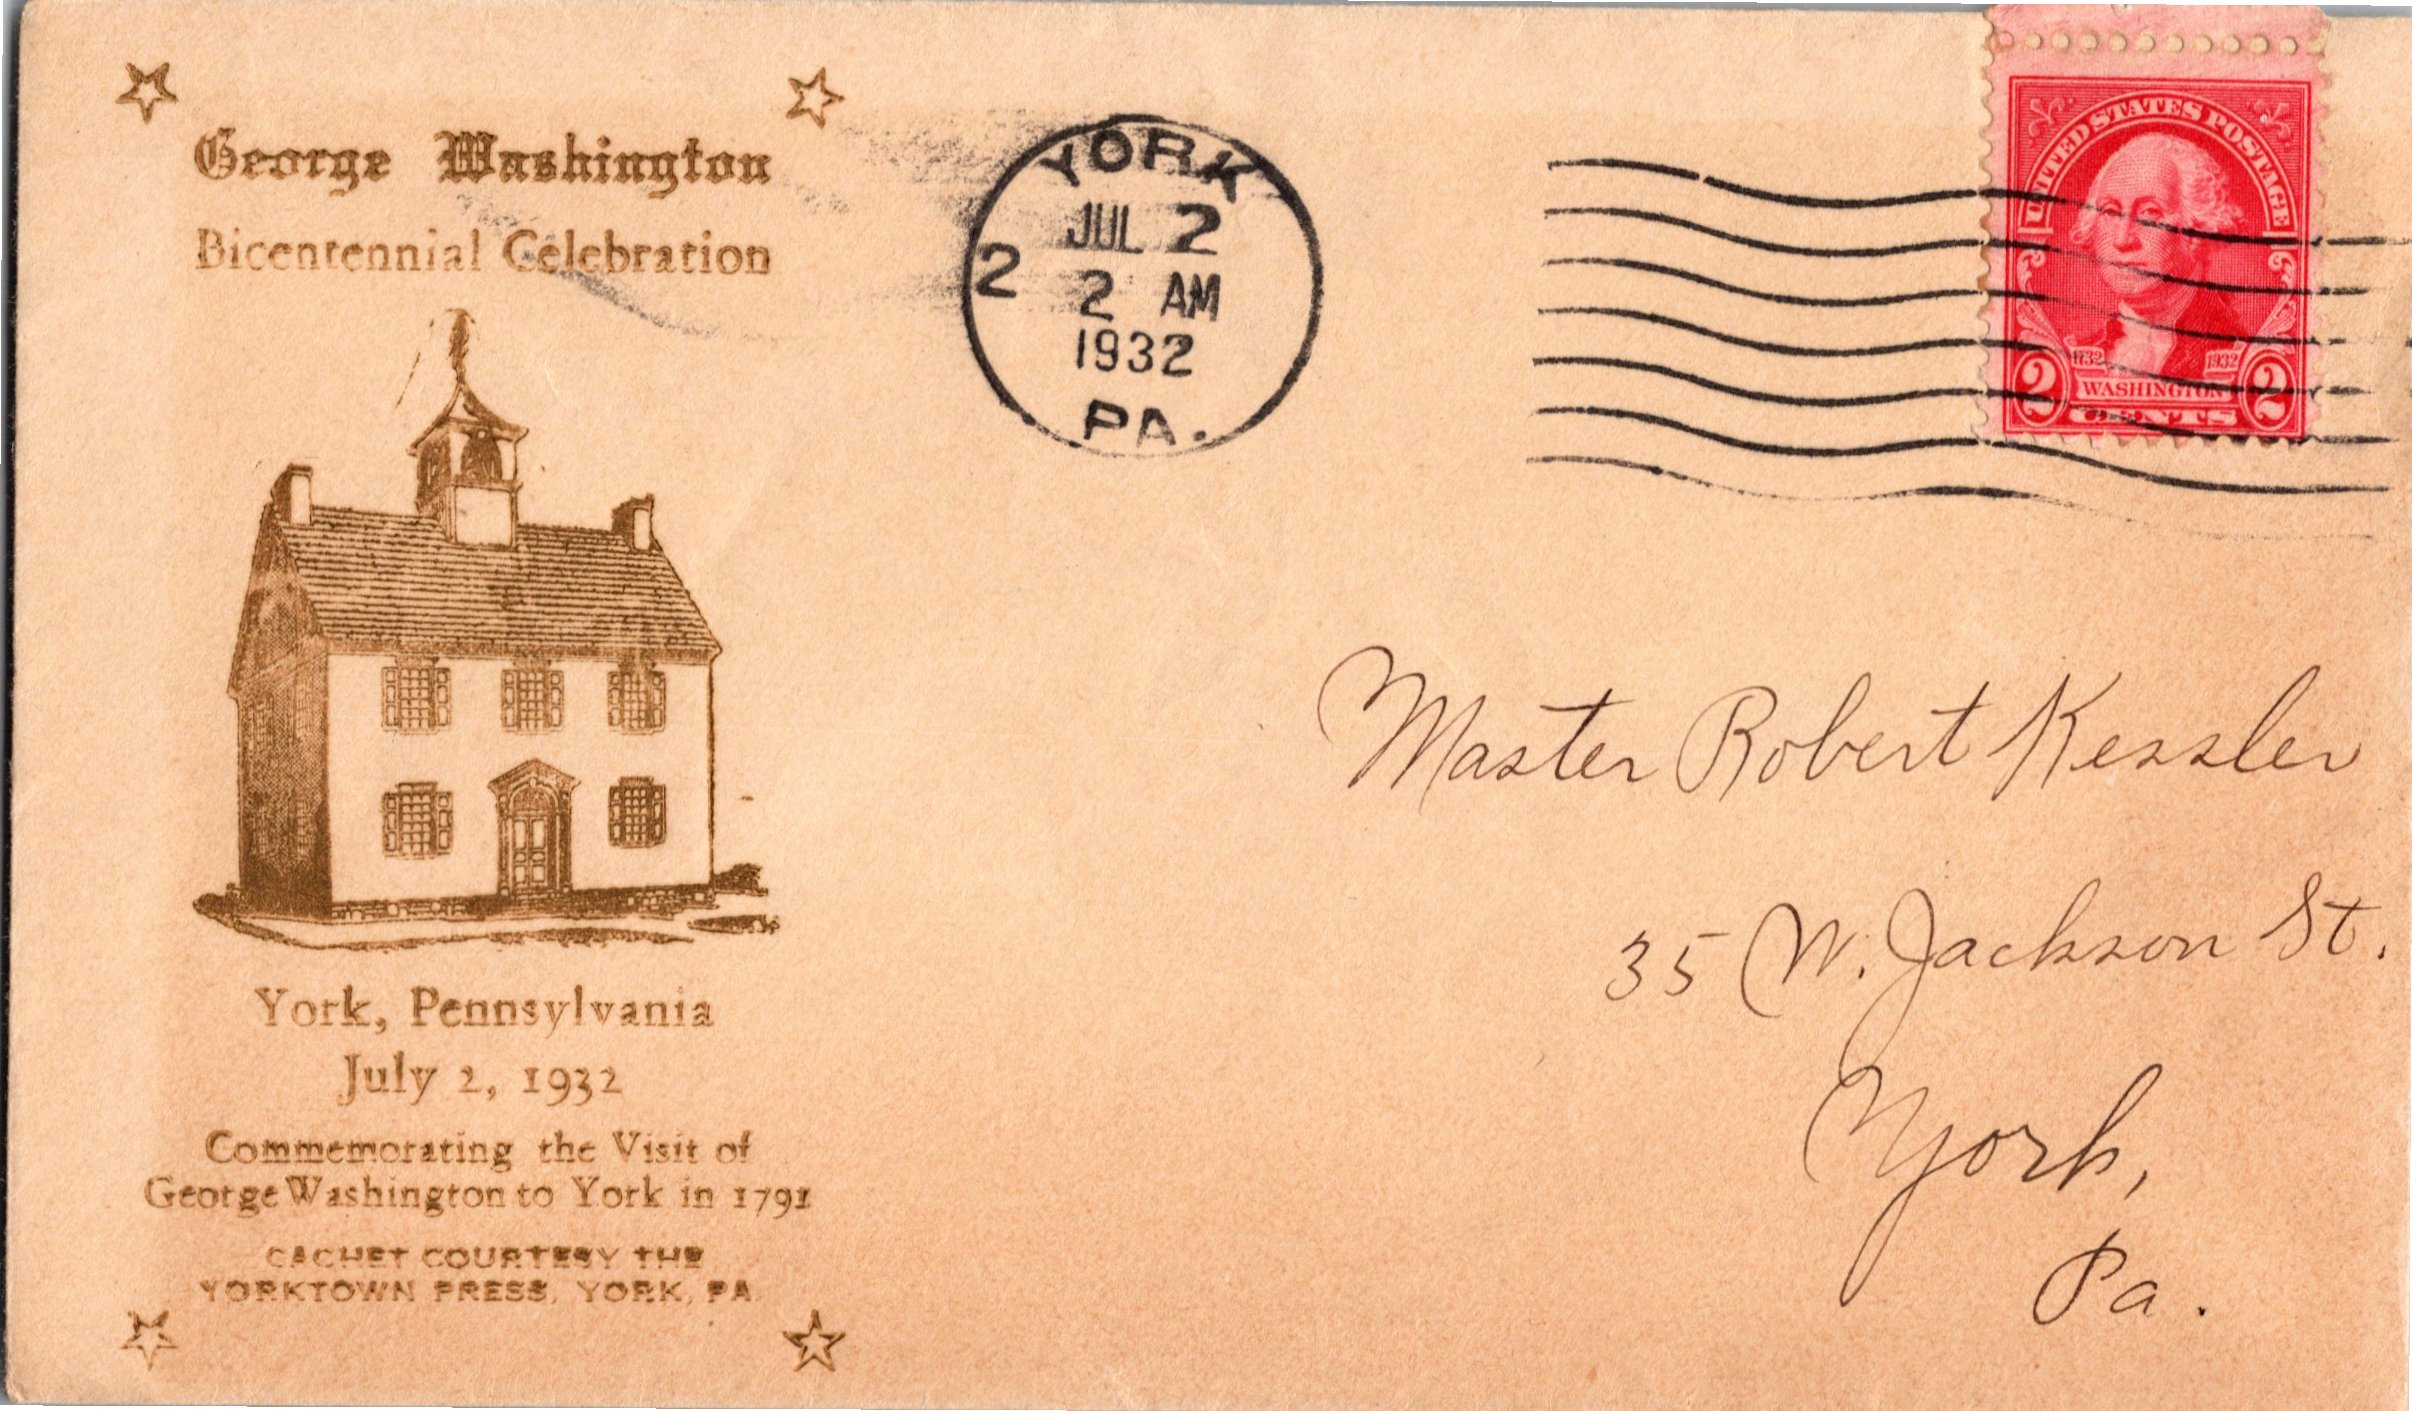 George Washington
Bicentennial Celebration
York, Pennsylvania
July 2, 1932
Commemorating the Visit of
George Washington to York in 1791
CACHET COURTESY THE
YORKTOWN PRESS, YORK, PA.
YORK
JUL 2
2 2 AM
1932
PA.
UNITED STATES POSTAGE
1732 1932
2 WASHINGTON 2
CENTS
Master Robert Kessler
35 W. Jackson St.
York,
Pa.